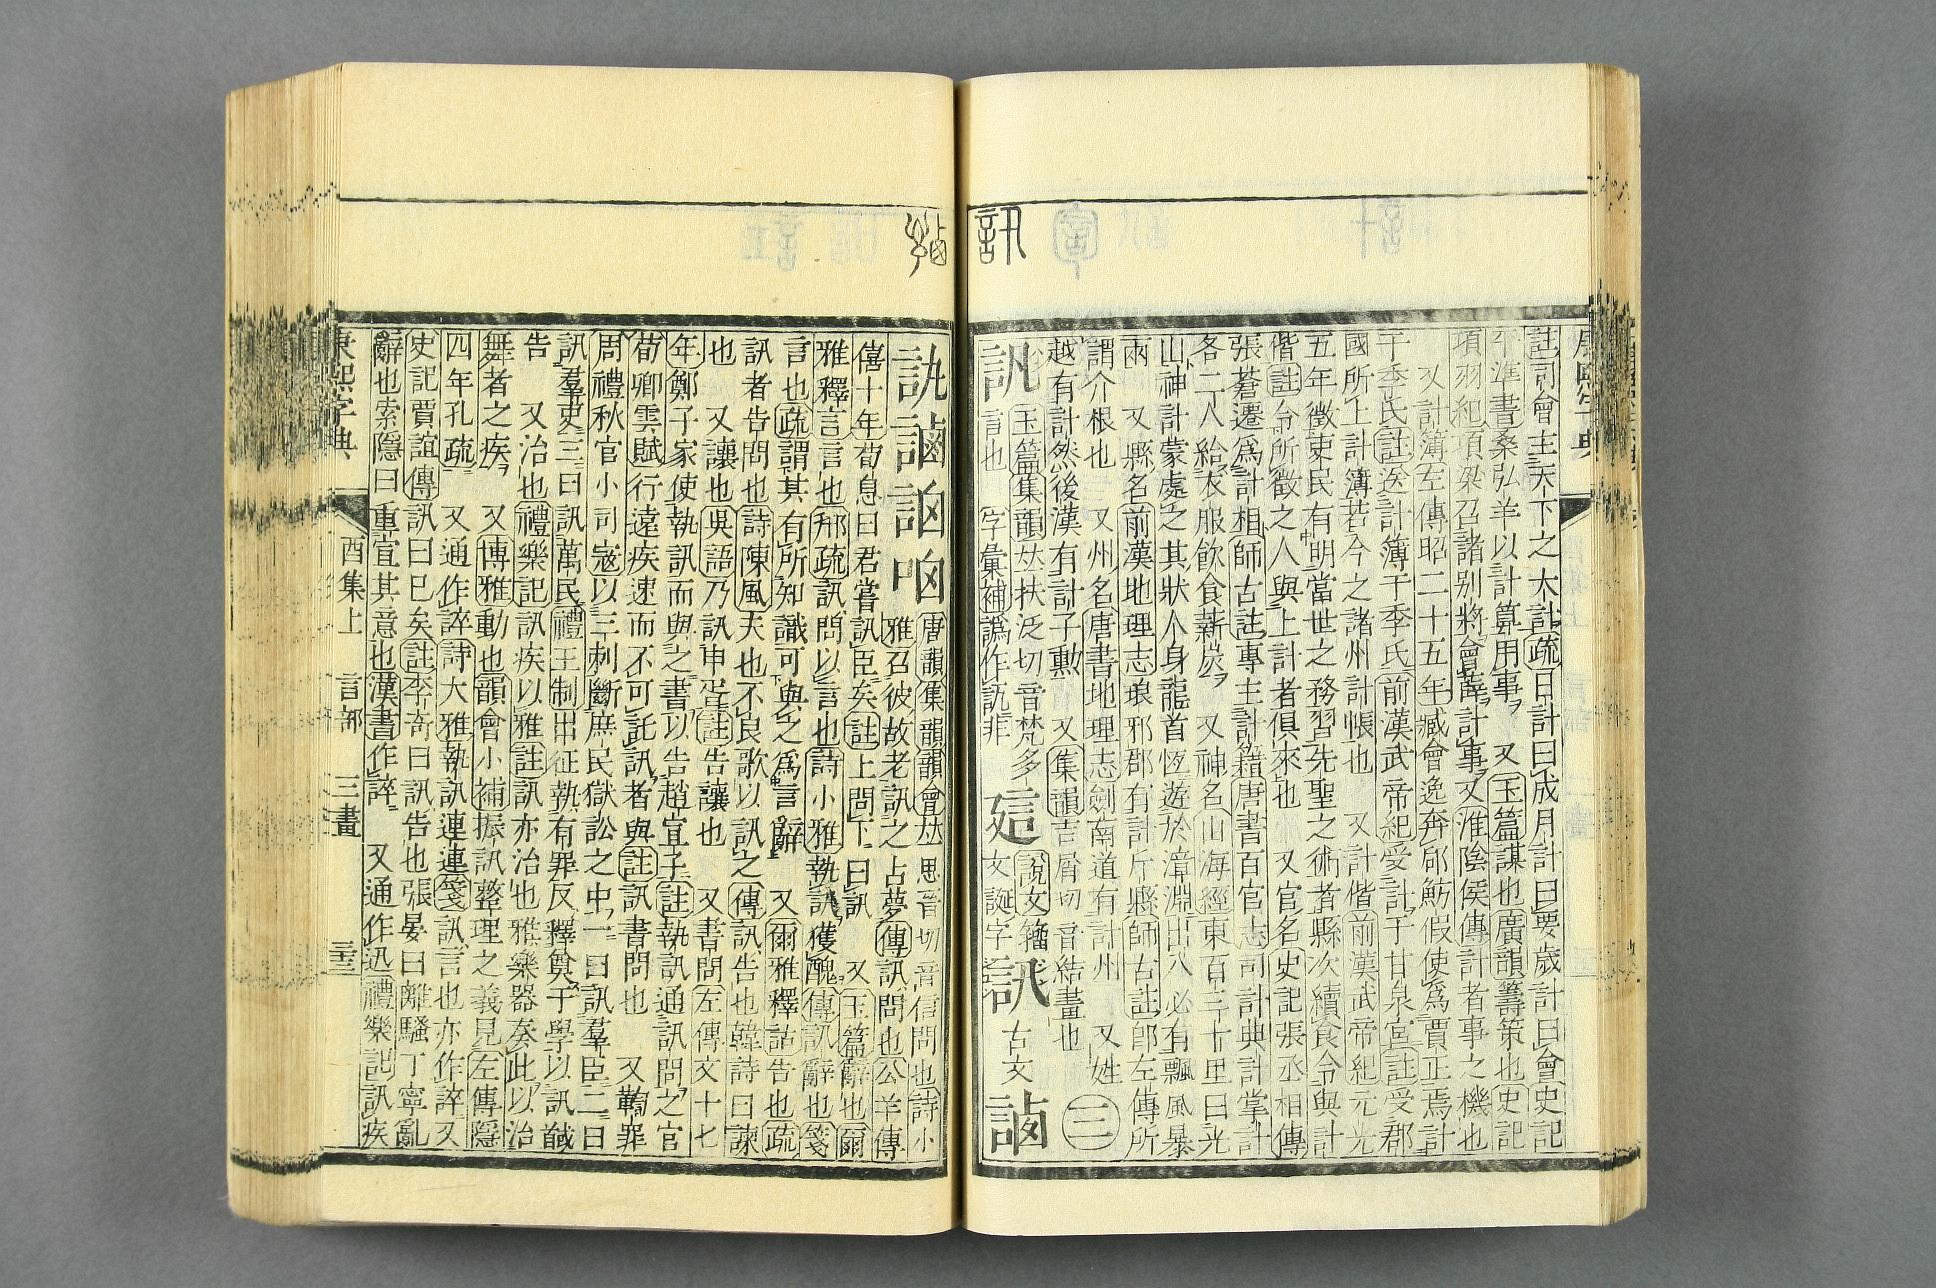 訊
康熙字典
註司會主天下之大計疏日計曰成月計曰要歲計曰會史記
平準書桑弘羊以計算用事又玉篇謀也廣韻籌策也史記
項羽紀項梁召諸別將會薛計事又淮陰侯傳計者事之機也
又計簿左傳昭二十五年臧會逸奔郈魴假使爲賈正焉計
于季氏註送計簿于季氏前漢武帝紀受計于甘泉宮註受郡
國所上計簿若今之諸州計帳也又計偕前漢武帝紀元光
五年徵吏民有明當世之務習先聖之術者縣次續食令與計
偕註令所徵之人與上計者俱來也又官名史記張丞相傳
張蒼遷爲計相師古註專主計籍唐書百官志司計典計掌計
各二人給衣服飲食薪炭又神名山海經東百三十里曰光
山神計蒙處之其狀人身龍首恆遊於漳淵出入必有飄風暴
雨又縣名前漢地理志琅邪郡有計斤縣師古註卽左傳所
謂介根也又州名唐書地理志劍南道有計州又姓
越有計然後漢有計子勳又集韻吉屑切音結畫也三
訉玉篇集韻𠀤扶泛切音梵多言也字彙補譌作訊非說文籀文誕字古文
訊唐韻集韻韻會𠀤思晉切音信問也詩小
雅召彼故老訊之占夢傳訊問也公羊傳
僖十年荀息曰君嘗訊臣矣註上問下曰訊又玉篇辭也爾
雅釋言言也郉疏訊問以言也詩小雅執訊獲醜傳訊辭也箋
言也疏謂其有所知識可與之爲言辭又爾雅釋詁告也疏
訊者告問也詩陳風夫也不良歌以訊之傳訊告也韓詩曰諫
也又讓也吳語乃訊申胥註告讓也又書問左傳文十七
年鄭子家使執訊而與之書以告趙宣子註執訊通訊問之官
荀卿雲賦行遠疾速而不可託訊者與註訊書問也又鞫罪
周禮秋官小司寇以三刺斷庶民獄訟之中一曰訊羣臣二曰
訊羣吏三曰訊萬民禮王制出征執有罪反釋奠于學以訊馘
告又治也禮樂記訊疾以雅註訊亦治也雅樂器奏此以治
舞者之疾又博雅動也韻會小補振訊整理之義見左傳隱
四年孔疏又通作誶詩大雅執訊連連箋訊言也亦作誶又
史記賈誼傳訊曰已矣註李奇曰訊告也張晏曰離騷丁寧亂
辭也索隱曰重宣其意也漢書作誶又通作迅禮樂記訊疾
康熙字典酉集上言部三畫